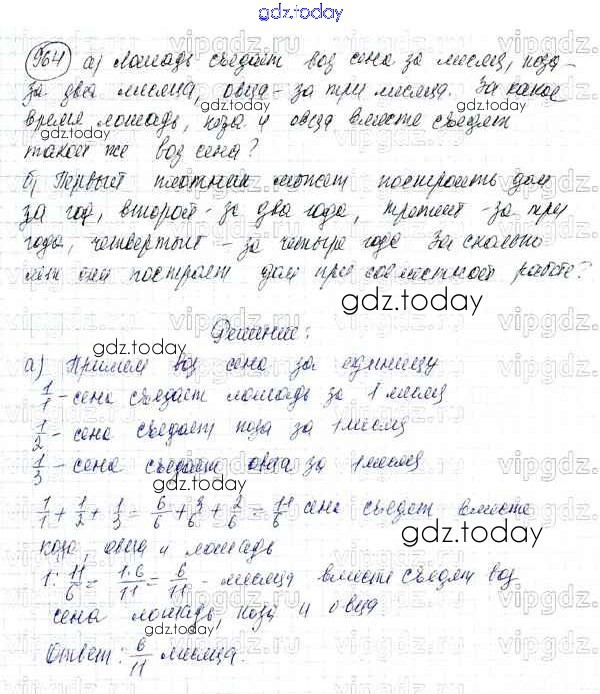 gdz.today
964 а) Лошадь съедает воз сена за месяц, коза –
за два месяца, овца – за три месяца. За какое
время лошадь, коза и овца вместе съедят
такой же воз сена?
б) Первый плотник может построить дом
за год, второй – за два года, третий – за три
года, четвертый – за четыре года За сколько
лет они построят дом при совместной работе?
gdz.today
Решение:
gdz.today
а) Примем воз сена за единицу
1/1 – сена съедает лошадь за 1 месяц
1/2 – сена съедает коза за 1 месяц
1/3 – сена съедает овца за 1 месяц
1/1 + 1/2 + 1/3 = 6/6 + 3/6 + 2/6 = 11/6 сена съедят вместе
gdz.today
коза, овца и лошадь
1 : 11/6 = 1·6/11 = 6/11 – месяца вместе съедят воз
сена лошадь, коза и овца.
gdz.today
Ответ: 6/11 месяца.